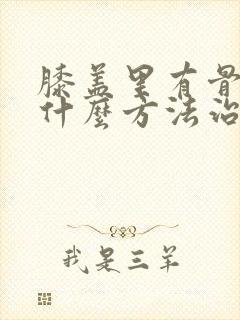 膝盖里有骨
什麽方法治
我是三羊